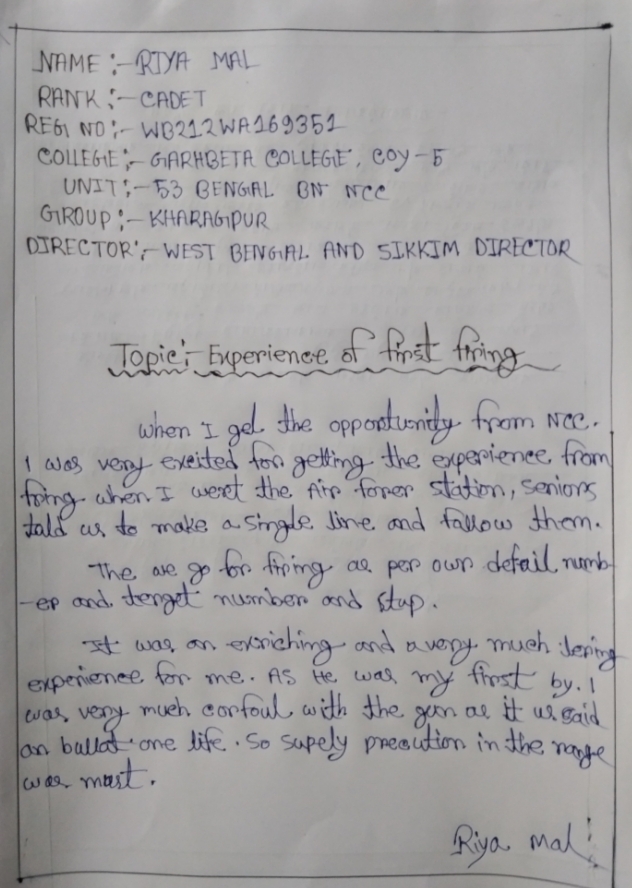 NAME :- RIYA MAL
RANK :- CADET
REGI NO :- WB212WA169351
COLLEGE :- GARHBETA COLLEGE, COY-5
UNIT :- 53 BENGAL BN NCC
GROUP :- KHARAGPUR
DIRECTOR :- WEST BENGAL AND SIKKIM DIRECTOR
Topic :- Experience of first firing
when I get the opportunity from NCC.
I was very excited for getting the experience from
firing when I went the Air forcer station, seniors
told us to make a single line and follow them.
The we go for firing as per own detail numb-
-er and terget number and stap.
It was an enriching and a very much
experience for me. As He was my first by. I
was very much carfoul with the gun as it us said
an bullat one life. So supely precution in the range
was must.
Riya Mal